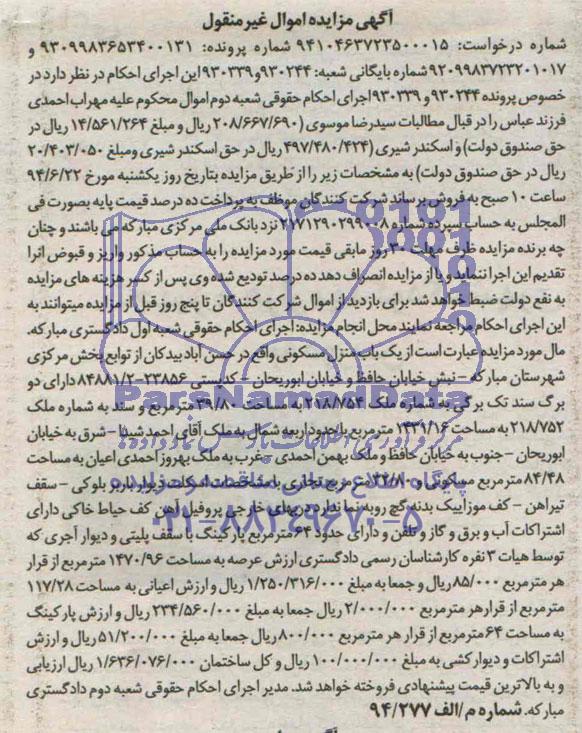 آگهی مزایده اموال غیرمنقول
شماره درخواست: ۹۴۱۰۴۶۳۷۲۳۵۰۰۰۱۵ شماره پرونده: ۹۳۰۹۹۸۳۶۵۳۴۰۰۱۳۱ و
۹۲۰۹۹۸۳۷۲۳۲۰۱۰۱۷ شماره بایگانی شعبه: ۹۳۰۲۴۴و۹۳۰۳۳۹ این اجرای احکام در نظر دارد در
خصوص پرونده ۹۳۰۲۴۴ و ۹۳۰۳۳۹اجرای احکام حقوقی شعبه دوم اموال محکوم علیه مهراب احمدی
فرزند عباس را در قبال مطالبات سیدرضا موسوی (۲۰۸/۶۶۷/۶۹۰ ریال و مبلغ ۱۴/۵۶۱/۲۶۴ ریال در
حق صندوق دولت) و اسکندر شیری (۴۹۷/۴۸۰/۴۲۴ ریال در حق اسکندر شیری ومبلغ ۲۰/۴۰۳/۰۵۰
ریال در حق صندوق دولت) به مشخصات زیر را از طریق مزایده بتاریخ روز یکشنبه مورخ ۹۴/۶/۲۲
ساعت ۱۰ صبح به فروش برساند شرکت کنندگان موظف به پرداخت ده درصد قیمت پایه بصورت فی
المجلس به حساب سپرده شماره ۲۱۷۱۲۹۰۲۹۹۰۰۸ نزد بانک ملی مرکزی مبارکه می باشند و چنان
چه برنده مزایده ظرف مهلت ۳۰ روز مابقی قیمت مورد مزایده را به حساب مذکور واریز و قبوض انرا
تقدیم این اجرا ننماید و یا از مزایده انصراف دهد ده درصد تودیع شده وی پس از کسر هزینه های مزایده
به نفع دولت ضبط خواهد شد برای بازدید از اموال شرکت کنندگان تا پنج روز قبل از مزایده میتوانند به
این اجرای احکام مراجعه نمایند محل انجام مزایده: اجرای احکام حقوقی شعبه اول دادگستری مبارکه.
مال مورد مزایده عبارت است از یک باب منزل مسکونی واقع در حسن آباد بیدکان از توابع بخش مرکزی
شهرستان مبارکه – نبش خیابان حافظ و خیابان ابوریحان – کدپستی ۲۳۸۵۶–۸۴۸۸۱/۲ دارای دو
برگ سند تک برگی به شماره ملک ۲۱۸/۷۵۴ به مساحت ۳۹/۸۰ مترمربع و سند به شماره ملک
۲۱۸/۷۵۲ به مساحت ۱۴۳۱/۱۶ مترمربع با حدود اربعه شمال به ملک آقای احمد شیدا – شرق به خیابان
ابوریحان – جنوب به خیابان حافظ و ملک بهمن احمدی – غرب به ملک بهروز احمدی اعیان به مساحت
۸۴/۴۸ مترمربع مسکونی و ۳۲/۸۰ مترمربع تجاری با مشخصات اسکلت دیوار باربر بلوکی – سقف
تیراهن – کف موزاییک بدنه گچ رویه نما ندارد دربهای خارجی پروفیل آهن کف حیاط خاکی دارای
اشتراکات آب و برق و گاز و تلفن و دارای حدود ۶۴ مترمربع پارکینگ با سقف پلیتی و دیوار آجری که
توسط هیات ۳ نفره کارشناسان رسمی دادگستری ارزش عرصه به مساحت ۱۴۷۰/۹۶ مترمربع از قرار
هر مترمربع ۸۵/۰۰۰ ریال و جمعا به مبلغ ۱/۲۵۰/۳۱۶/۰۰۰ ریال و ارزش اعیانی به مساحت ۱۱۷/۲۸
مترمربع از قرار هر مترمربع ۲/۰۰۰/۰۰۰ ریال جمعا به مبلغ ۲۳۴/۵۶۰/۰۰۰ ریال و ارزش پارکینگ
به مساحت ۶۴ مترمربع از قرار هر مترمربع ۸۰۰/۰۰۰ ریال جمعا به مبلغ ۵۱/۲۰۰/۰۰۰ ریال و ارزش
اشتراکات و دیوارکشی به مبلغ ۱۰۰/۰۰۰/۰۰۰ ریال و کل ساختمان ۱/۶۳۶/۰۷۶/۰۰۰ ریال ارزیابی
و به بالاترین قیمت پیشنهادی فروخته خواهد شد. مدیر اجرای احکام حقوقی شعبه دوم دادگستری
مبارکه. شماره م/الف ۹۴/۲۷۷
ParsNamadData
پایگاه اطلاع رسانی مناقصه و مزایده
۰۲۱–۸۸۳۴۹۶۷۰–۵